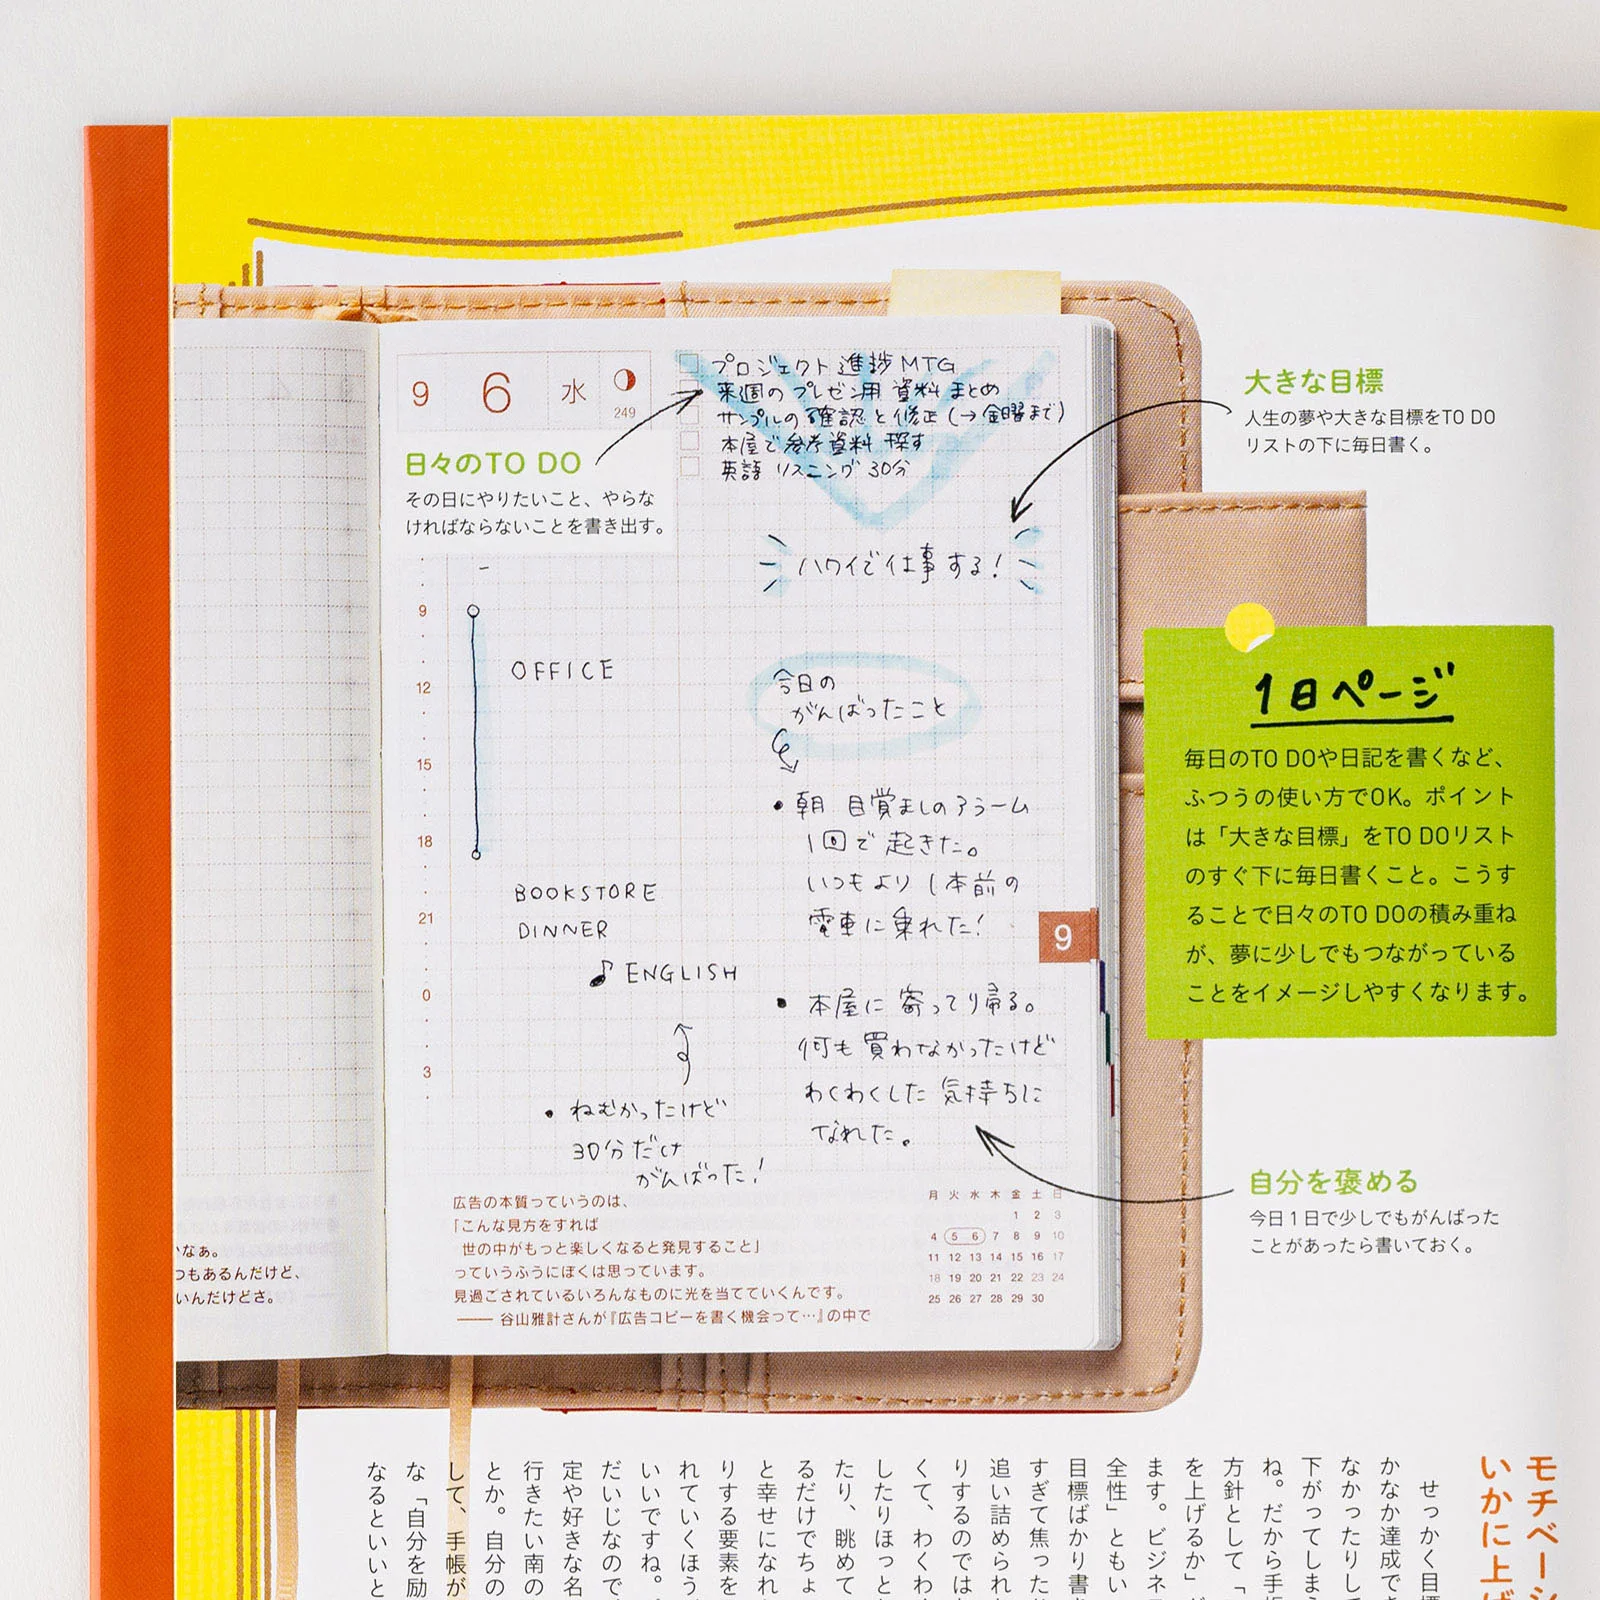 9 6 水
249
プロジェクト進捗MTG
来週のプレゼン用資料まとめ
サンプルの確認と修正(→金曜まで)
本屋で参考資料探す
英語リスニング30分
日々のTO DO
その日にやりたいこと、やらな
ければならないことを書き出す。
大きな目標
人生の夢や大きな目標をTO DO
リストの下に毎日書く。
ハワイで仕事する!
9
12
15
18
21
0
3
OFFICE
BOOKSTORE
DINNER
♪ENGLISH
・ねむかったけど
30分だけ
がんばった!
今日の
がんばったこと
・朝 目覚ましのアラーム
1回で起きた。
いつもより1本前の
電車に乗れた!
・本屋に寄ってり帰る。
何も買わなかったけど
わくわくした気持ちに
なれた。
9
1日ページ
毎日のTO DOや日記を書くなど、
ふつうの使い方でOK。ポイント
は「大きな目標」をTO DOリスト
のすぐ下に毎日書くこと。こうす
ることで日々のTO DOの積み重ね
が、夢に少しでもつながっている
ことをイメージしやすくなります。
自分を褒める
今日1日で少しでもがんばった
ことがあったら書いておく。
広告の本質っていうのは、
「こんな見方をすれば
世の中がもっと楽しくなると発見すること」
っていうふうにぼくは思っています。
見過ごされているいろんなものに光を当てていくんです。
── 谷山雅計さんが『広告コピーを書く機会って…』の中で
月 火 水 木 金 土 日
1 2 3
4 5 6 7 8 9 10
11 12 13 14 15 16 17
18 19 20 21 22 23 24
25 26 27 28 29 30
なぁ。
つもあるんだけど、
いんだけどさ。
モチベーシ
いかに上げ
せっかく目標
かなか達成でき
なかったりして
下がってしまう
ね。だから手帳
方針として「
を上げるか」が
ます。ビジネス
全性」ともい
目標ばかり書き
すぎて焦った
追い詰められた
りするのではな
くて、わくわく
したりほっと
たり、眺めて
るだけでちょ
と幸せになれ
りする要素を
れていくほう
いいですね。
だいじなので
定や好きな名
行きたい南の
とか。自分の
して、手帳が
な「自分を励
なるといいと